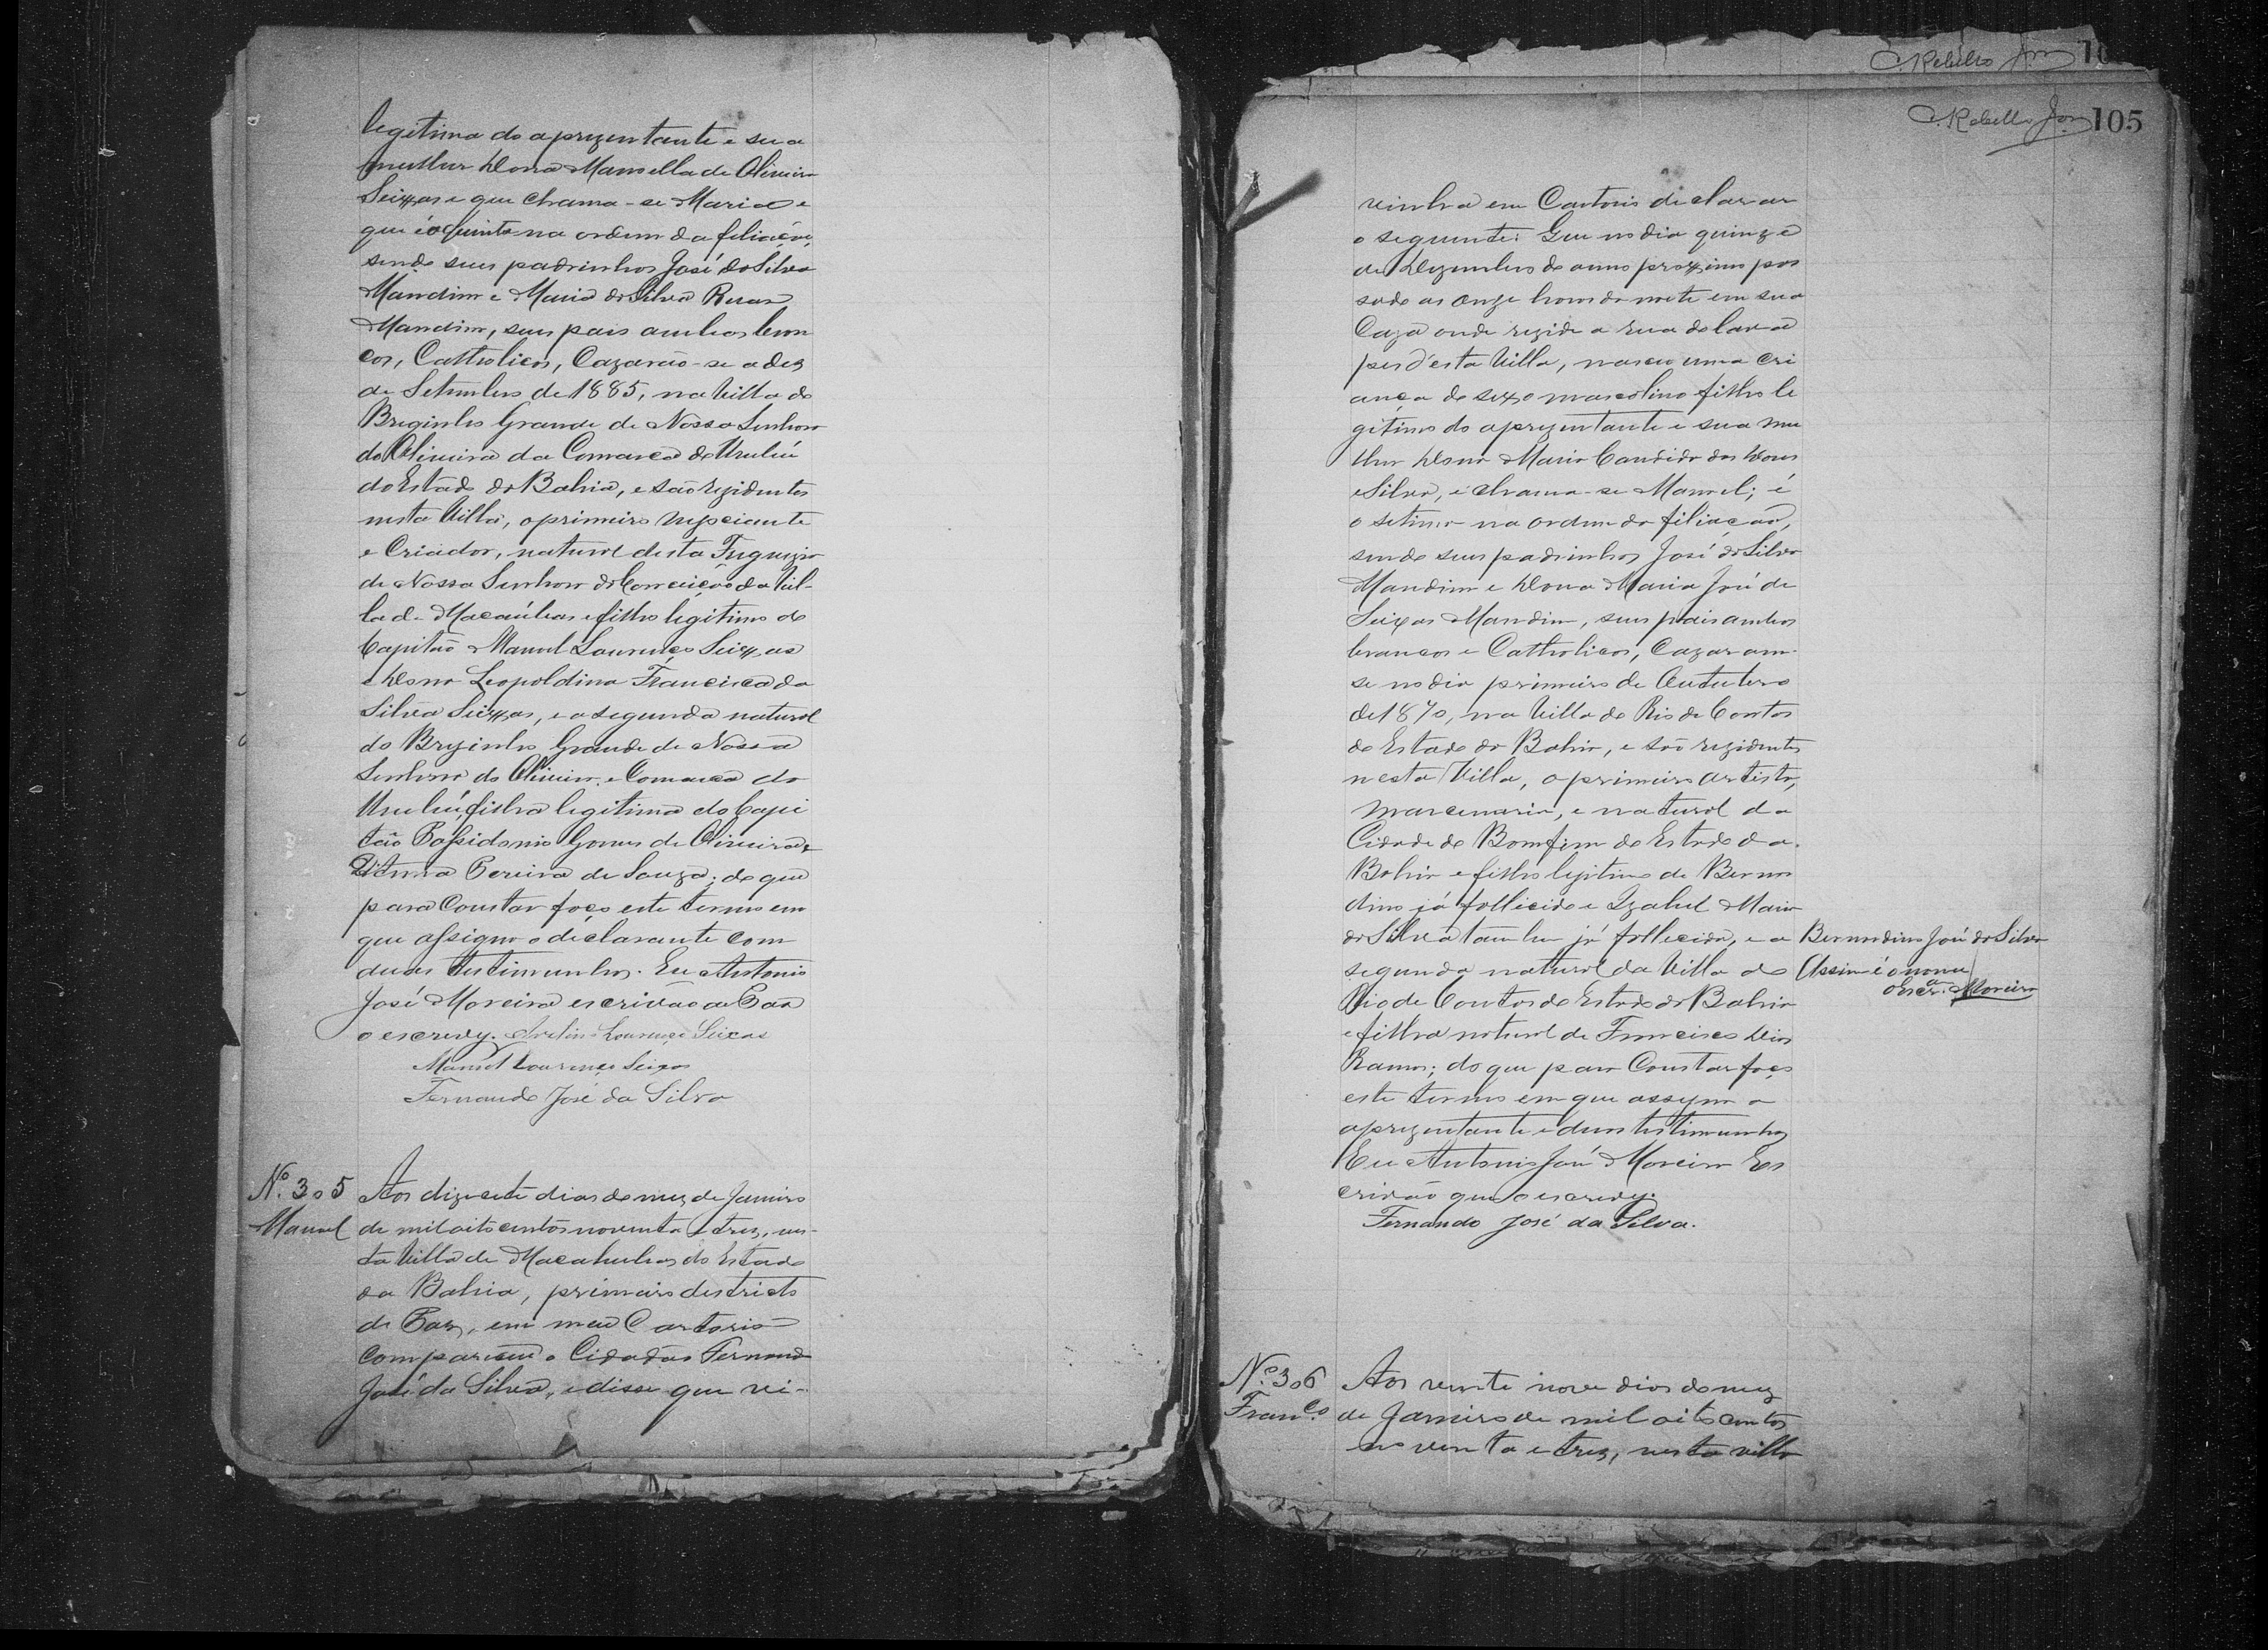 legitima do aprezentante e sua
mulher Dona Manoella de Oliveira
Seixas e que chama-se Maria e
que é a quinta na ordem da filiação,
sendo seus padrinhos José da Silva
Mandim e Maria da Silva
Mandim, seus pais ambos bran
cos, Catholicos, Cazarão-se a dez
de Setembro de 1885, na Villa do
Brejinho Grande de Nossa Senhora
da Oliveira da Comarca de Urubú
do Estado da Bahia, e são rezidentes
nesta Villa, o primeiro Negociante
e Criador, natural desta Freguezia
de Nossa Senhora da Conceição da Vil-
la de Macaúbas e filho legitimo do
Capitão Manoel Lourenço Seixas
e Dona Leopoldina Francisca da
Silva Seixas, e a segunda natural
do Brejinho Grande de Nossa
Senhora da Oliveira e Comarca do
Urubú, filha legitima do Capi
tão Possidonio Gomes de Oliveira e
Pereira de Souza; do que
para Constar faço este termo em
que assigna o declarante com
duas testimunhas. Eu Antonio
José Moreira escrivão de Paz
o escrevy. Lourenço Seixas
Manoel Lourenço Seixas
Fernando José da Silva
Nº. 305
Manoel
Aos dizecete dias do mez de Janeiro
de mil oito centos noventa e trez, nes-
ta Villa de Macahubas do Estado
da Bahia, primeiro districto
de Paz, em meu Cartorio
compareceu o Cidadão Fernando
José da Silva, e disse que vi-
C. Rebello Jor 10
C. Rebello Jor 105
vinha em Cartorio declarar
o seguinte: Que no dia quinze
de Dezembro do anno proximo pas
sado as onze horas da noite em sua
Caza onde rezide a rua do
d'esta Villa, nasceu uma cri
ança do sexo mascolino filho le
gitimo do aprezentante e sua mu
lher Dona Maria Candida das Dores
e Silva, e chama-se Manoel; é
o setimo na ordem da filiação,
sendo seus padrinhos José da Silva
Mandim e Dona Maria José de
Seixas Mandim, seus pais ambos
brancos e Catholicos, Cazaram-
se no dia primeiro de Outubro
de 1870, na Villa do Rio de Contas
do Estado da Bahia, e são rezidentes
nesta Villa, o primeiro artista,
marcenario, e natural da
Cidade do Bomfim do Estado da
Bahia e filho legitimo de Bernar
dino já fallecido e Izabel Maria
da Silva tambem já fallecida, e a
segunda natural da Villa do
Rio de Contas do Estado da Bahia
e filha natural de Francisco Dias
Ramos; do que para Constar faço
este termo em que assigna o
aprezentante e duas testimunhas
Eu Antonio José Moreira Es
crivão que o escrevy.
Fernando José da Silva.
Bernardino José da Silva
Assim é o nome
o Escram. Moreira
Nº. 306
Franco.
Aos vinte nove dias do mez
de Janeiro de mil oito centos
noventa e trez, nesta villa